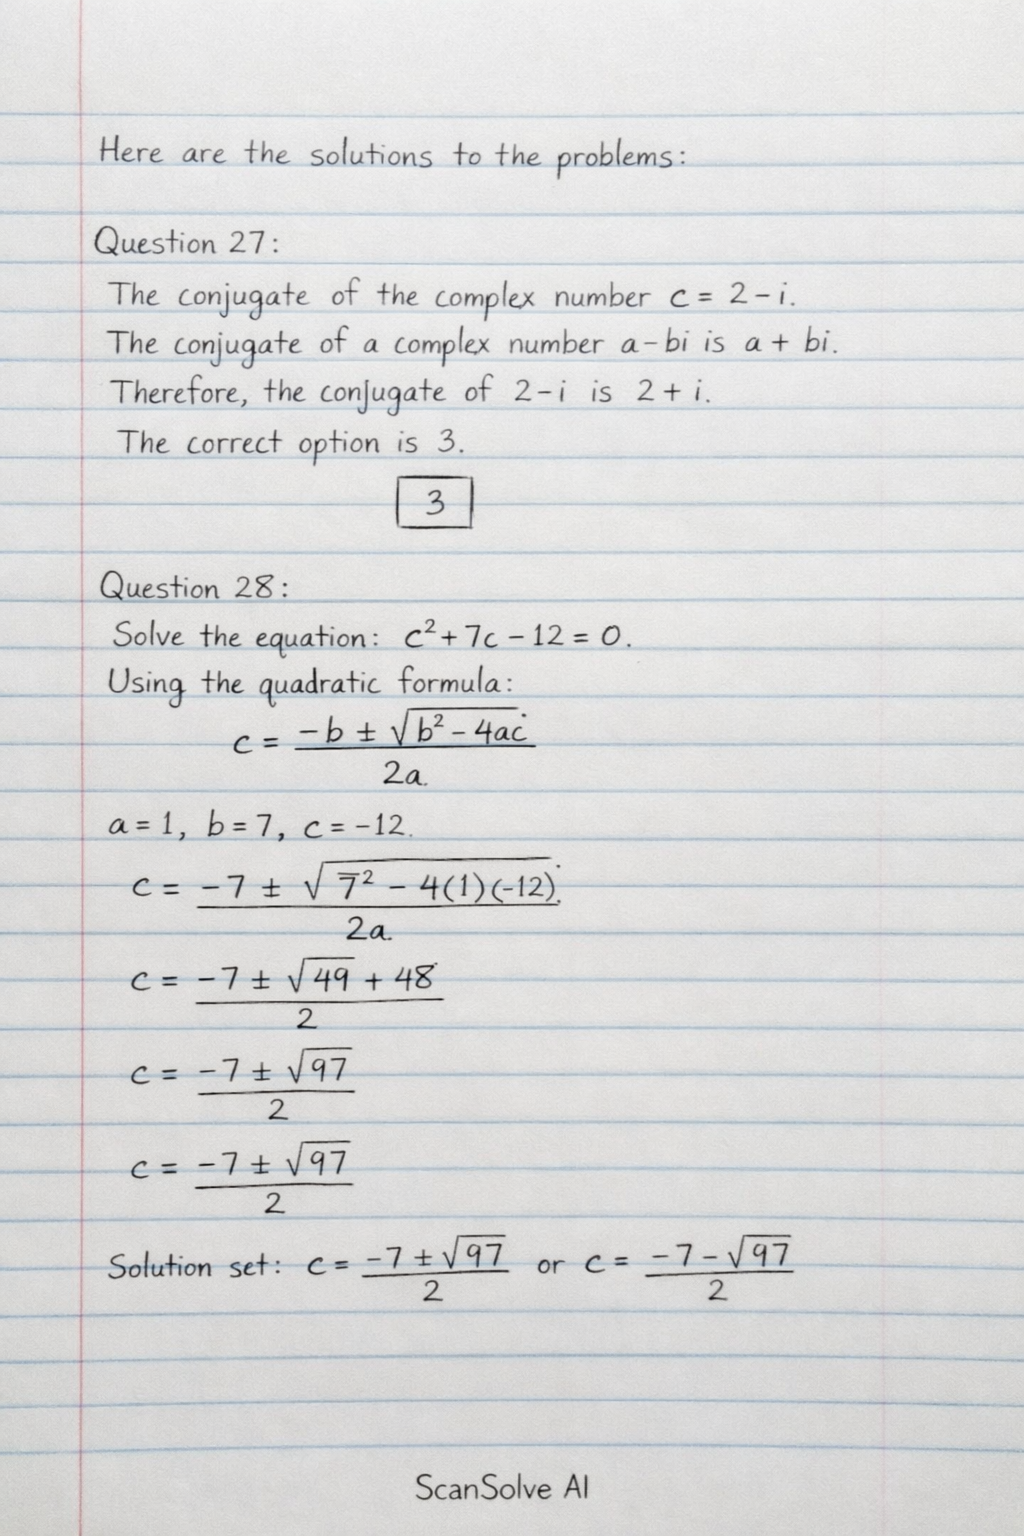 Here are the solutions to the problems:
Question 27:
The conjugate of the complex number c = 2 - i.
The conjugate of a complex number a - bi is a + bi.
Therefore, the conjugate of 2 - i is 2 + i.
The correct option is 3.
3
Question 28:
Solve the equation: c² + 7c - 12 = 0.
Using the quadratic formula:
c = -b ± √b² - 4ac
2a.
a = 1, b = 7, c = -12.
c = -7 ± √7² - 4(1)(-12).
2a.
c = -7 ± √49 + 48
2
c = -7 ± √97
2
c = -7 ± √97
2
Solution set: c = -7 ± √97 or c = -7 - √97
2 2
ScanSolve AI